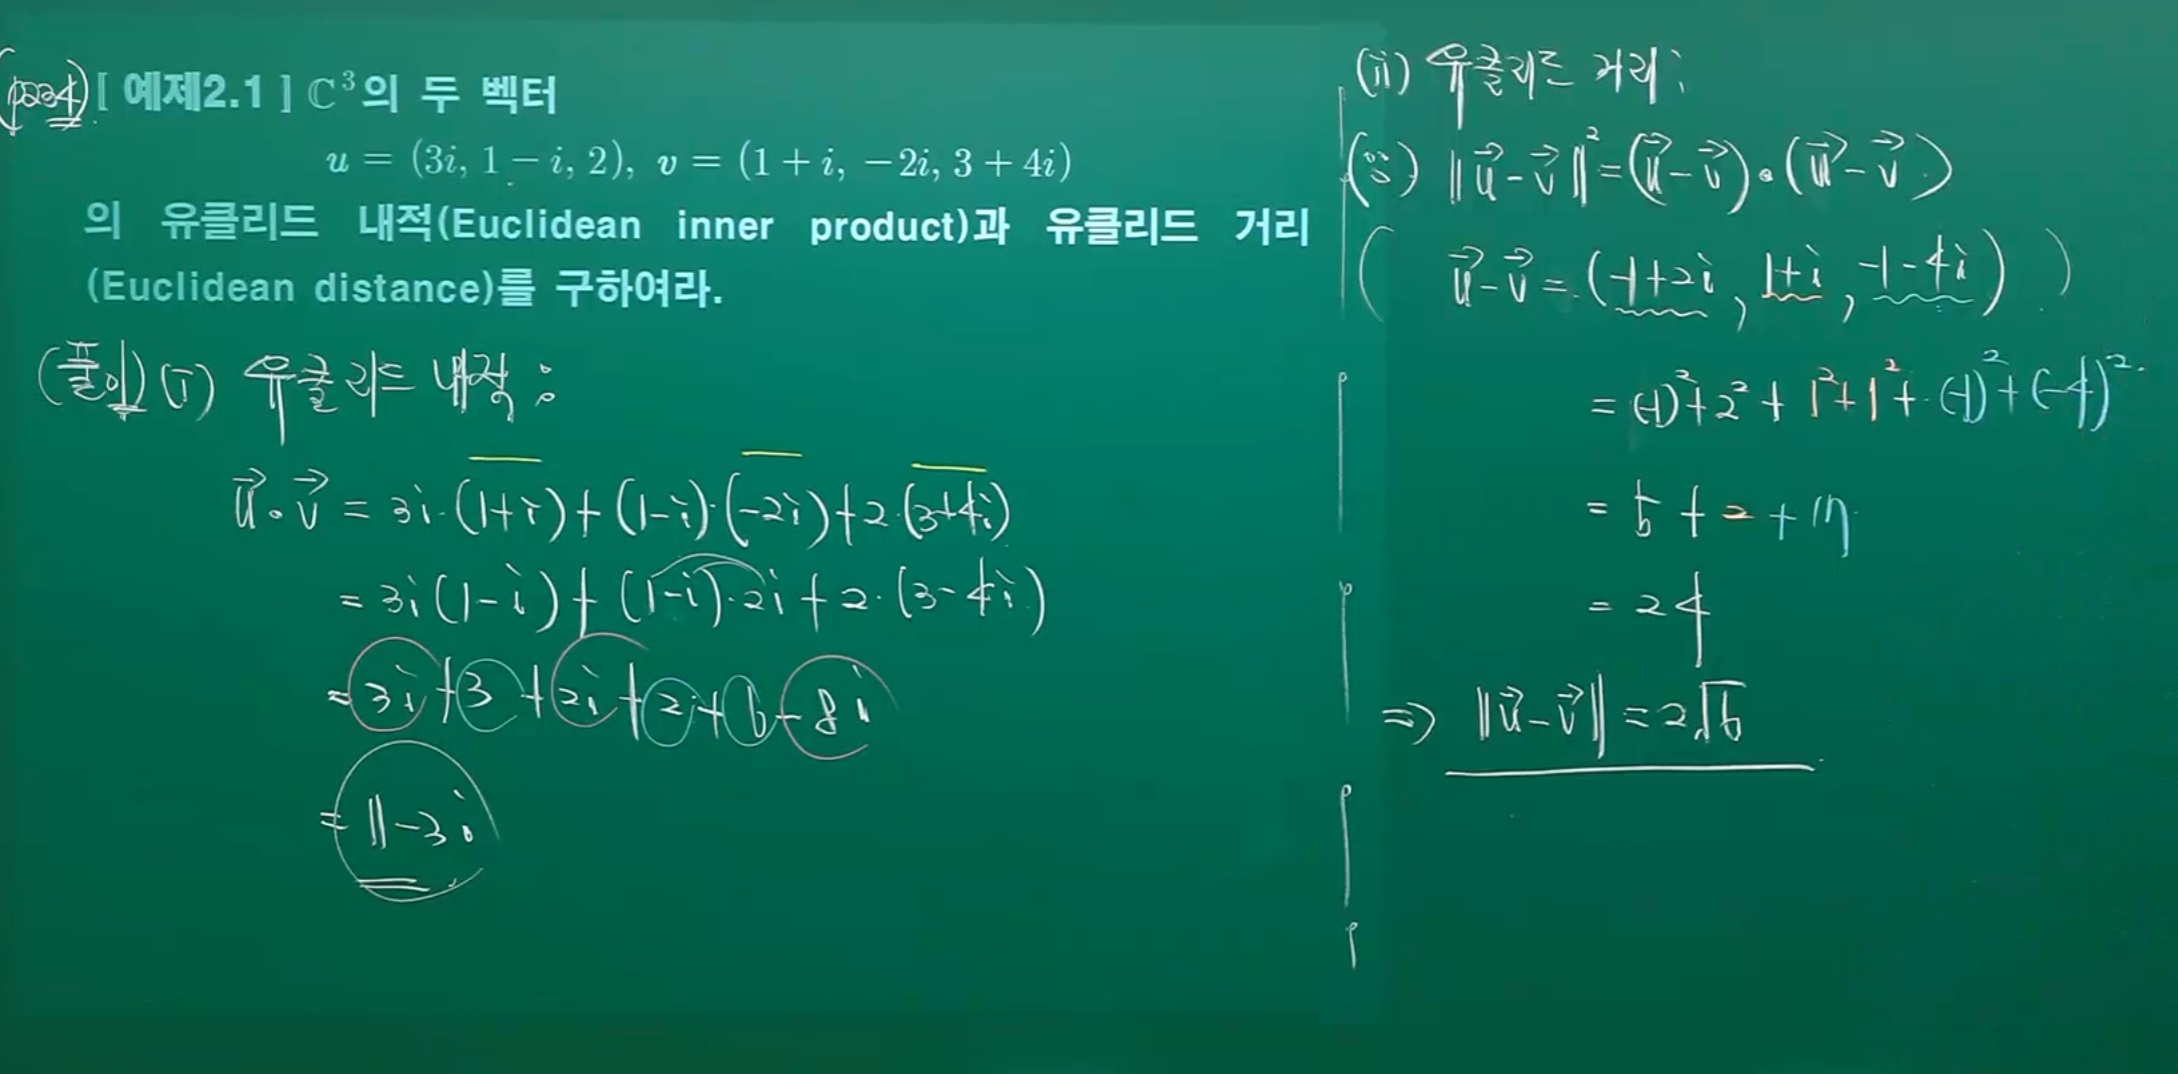 (p234) [ 예제2.1 ] ℂ³의 두 벡터
u = (3i, 1 − i, 2), v = (1 + i, −2i, 3 + 4i)
의 유클리드 내적(Euclidean inner product)과 유클리드 거리
(Euclidean distance)를 구하여라.
(풀이) (i) 유클리드 내적 :
u⃗·v⃗ = 3i·(1+i)‾ + (1-i)·(-2i)‾ + 2·(3+4i)‾
= 3i(1-i) + (1-i)·2i + 2·(3-4i)
= 3i+3+2i+2+6-8i
= 11-3i
(ii) 유클리드 거리 :
(∵) ‖u⃗-v⃗‖² = (u⃗-v⃗)·(u⃗-v⃗)
( u⃗-v⃗ = (-1+2i, 1+i, -1-4i) )
= (-1)²+2²+1²+1²+(-1)²+(-4)²
= 5+2+17
= 24
⇒ ‖u⃗-v⃗‖ = 2√6